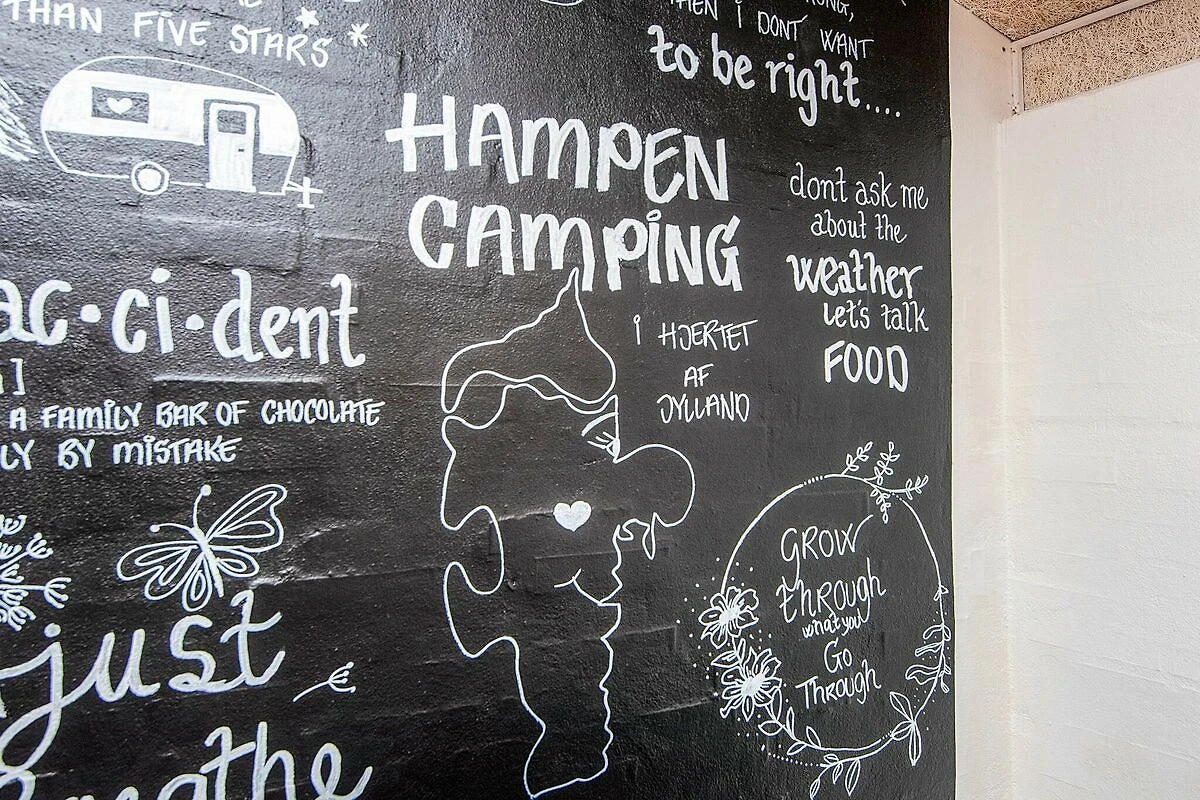 THAN FIVE STARS
THEN i DONT WANT
to be right....
HAMPEN
CAMPING
dont ask me
about the
weather
let's talk
FOOD
ac·ci·dent
i HJERTET
AF
JYLLAND
A FAMILY BAR OF CHOCOLATE
LY BY MISTAKE
GROW
through
what you
Go
Through
just
breathe